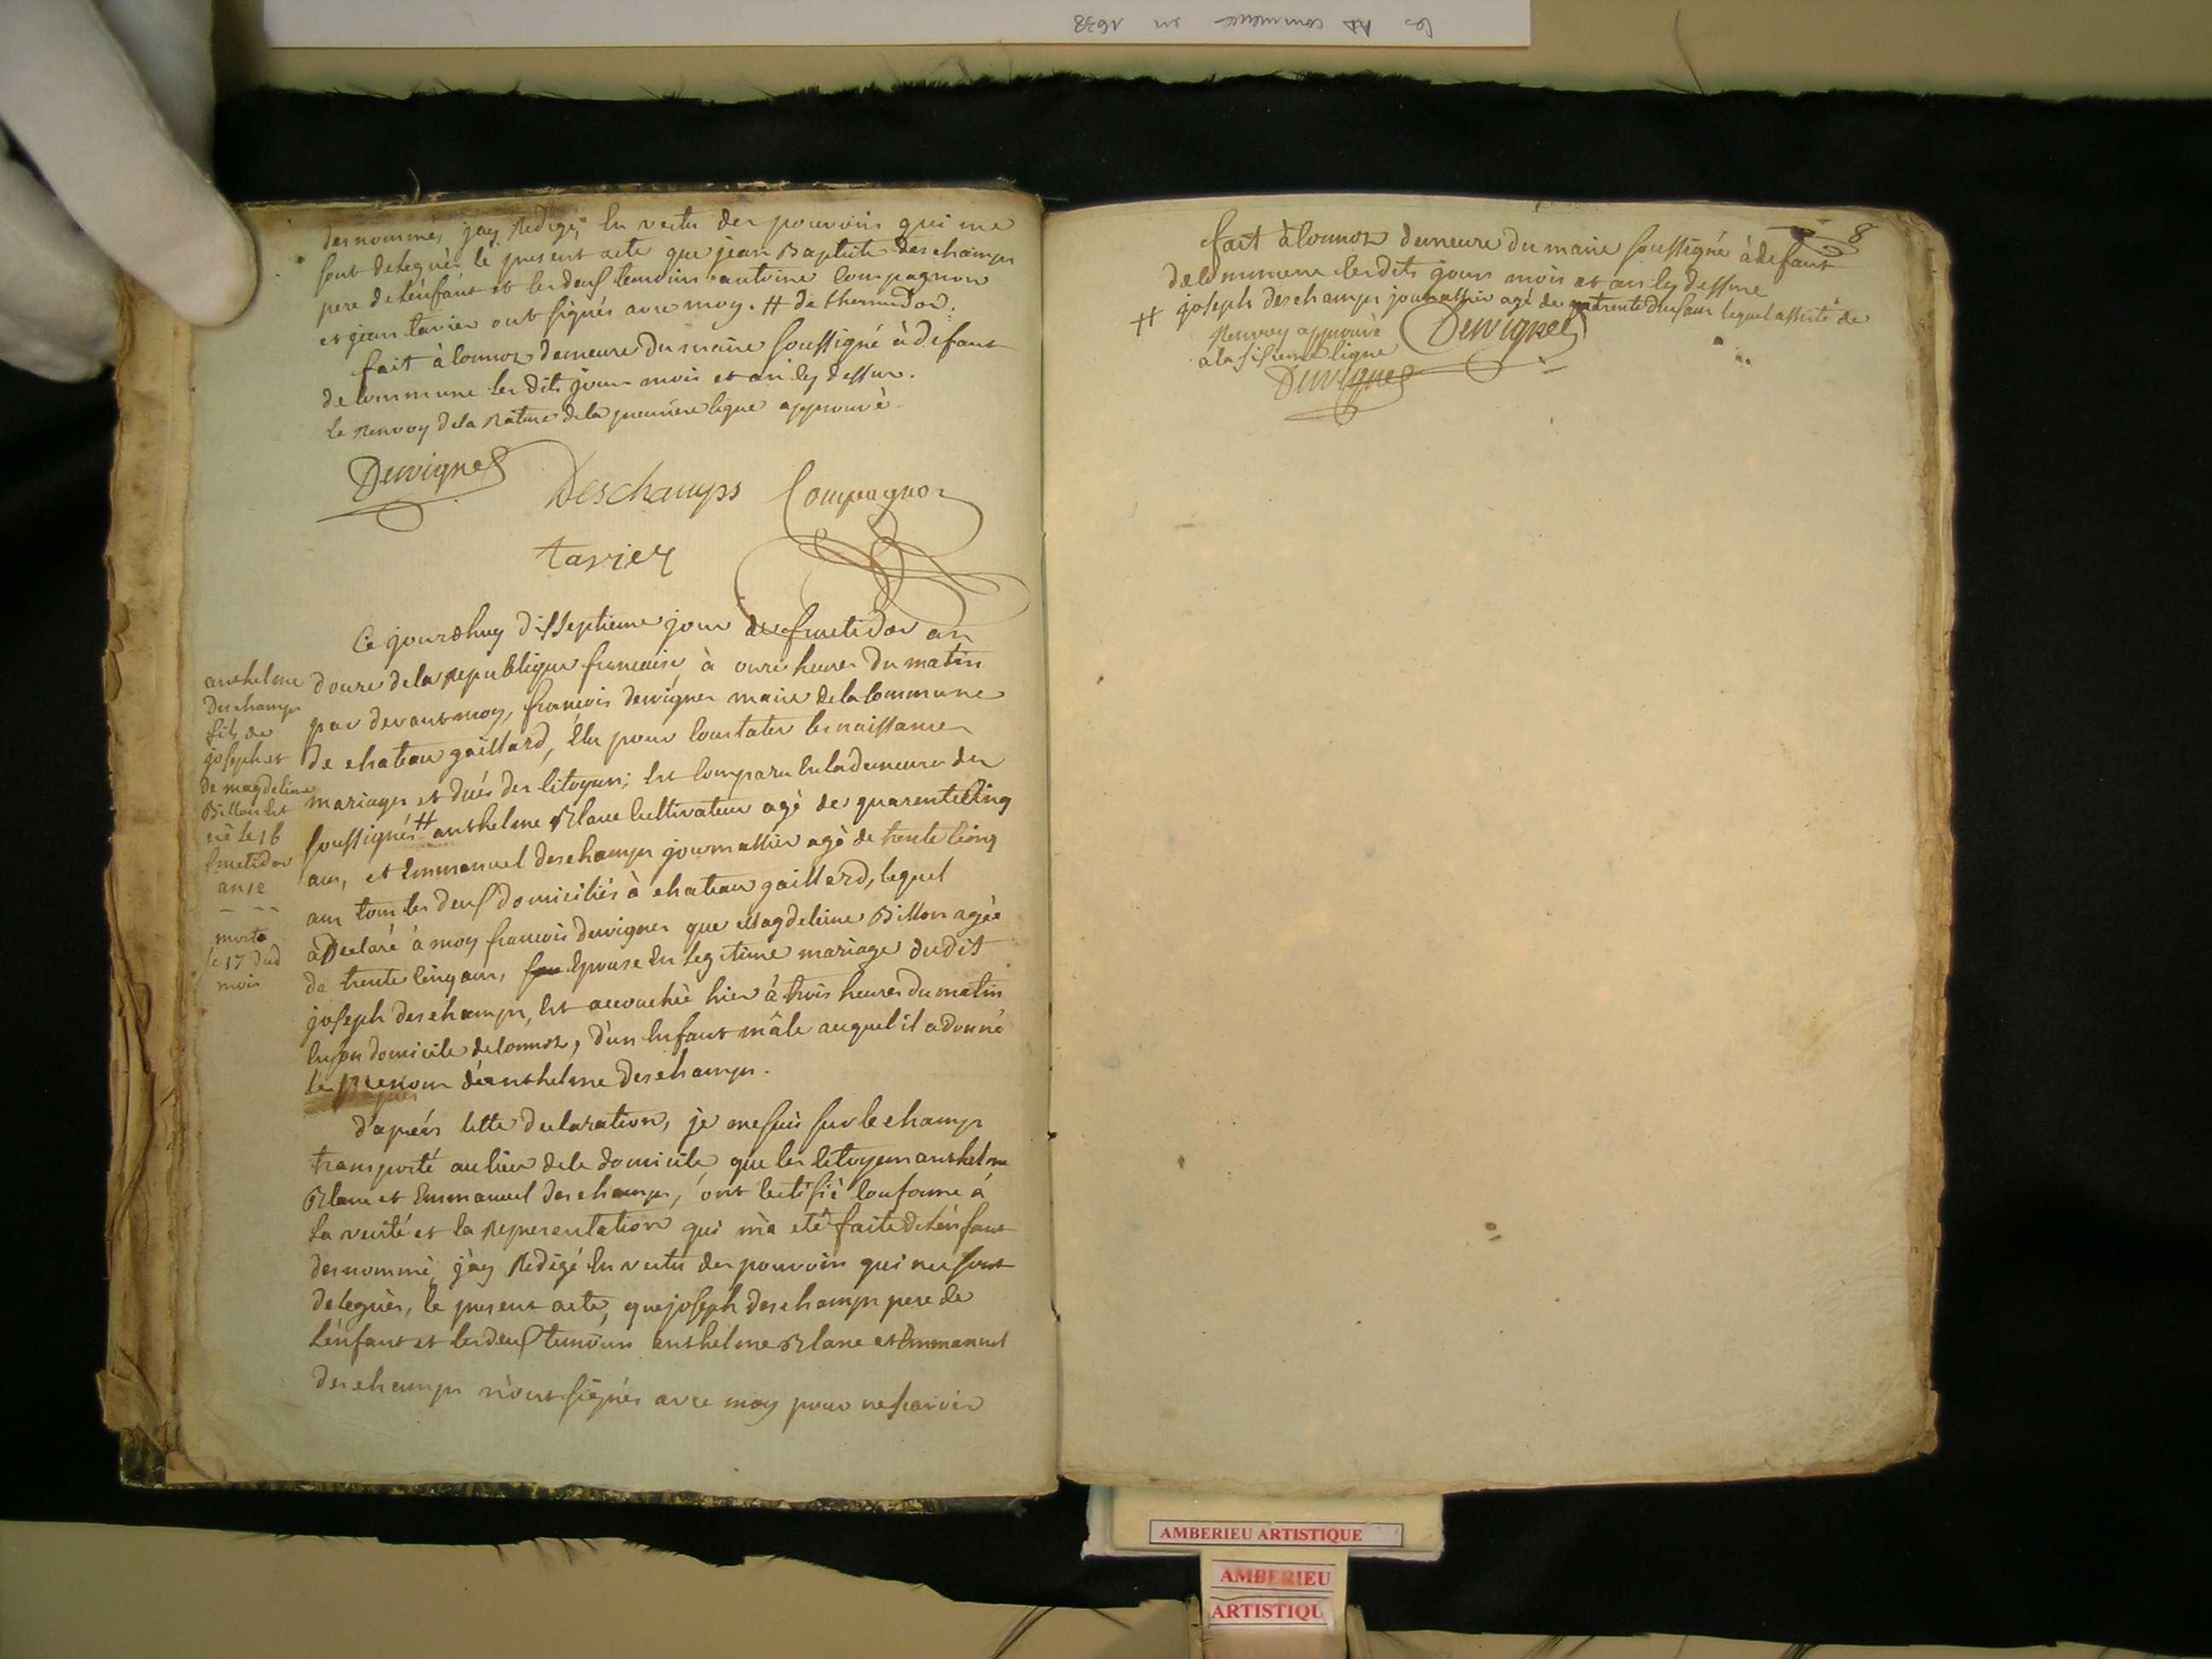 Les commence en 1698
desnommé, j'ay Redigé, En vertu des pouvoirs qui me
sont delegués le present acte que jean Baptiste deschamps
pere de l'enfant et les deux temoins antoine Compagnon
et jean tavier ont signés avec moy. # de thermidor.
fait à Connoz demeure du maire soussigné à defaut
de Commune les dits jour mois et an cy dessus.
le Renvoy de la Nature de la premiere ligne approuvé
Duvignes
Deschamps
Compagnon
tavier
Ce jourdhuy disseptieme jour de fructidor an
douze de la Republique francaise, à onze heures du matin
par devant moy, francois duvignes maire de la Commune
de chateau gaillard, Elu pour Constater les naissances
mariages et decés des Citoyens; Est Comparu En la demeure du
soussignés # anthelme Blanc Cultivateur agé de quarente Cinq
ans, et Emmanuel deschamps journallier agé de trente Cinq
ans tous les deux domiciliés à chateau gaillard, lequel
à Declaré à moy francois duvignes que Magdeleine Billon agée
de trente Cinq ans, Epouse En legitime mariage dudit
joseph deschamps, Est accouchée hier à trois heures du matin
En son domicile de Connoz, d'un Enfant mâle auquel il a donné
le Prenom d'anthelme deschamps.
anthelme
Deschamps
fils de
joseph et
de magdeleine
Billon Est
né le 16
fructidor
an 12
morte
le 17 dud
mois
d'aprés Cette declaration, je me suis sur le champ
transporté au lieu de le domicile que les Citoyens anthelme
Blanc et Emmanuel deschamps, ont Certifié Conforme à
La verité et la Representation qui m'a eté faite de l'enfant
desnommé, j'ay Redigé En vertu des pouvoirs qui me sont
delegués, le present acte, que joseph deschamps pere de
L'enfant et les deux temoins anthelme Blanc et Emmanuel
deschamps n'ont signés avec moy pour ne scavoir
8
fait à Connoz demeure du maire soussigné à defaut
de Commune lesdits jours mois et an cy dessus
# joseph deschamps journallier agé de trente deux ans lequel assisté de
Renvoy approuvé
a la sisieme ligne
Duvignes
Duvignes
AMBERIEU ARTISTIQUE
AMBERIEU
ARTISTIQU